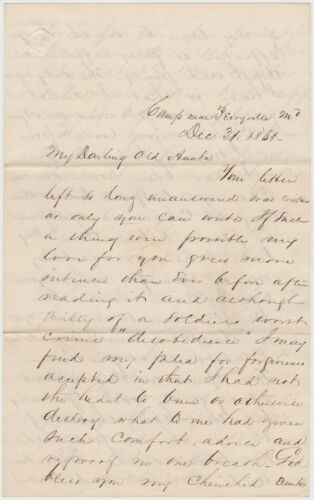 Camp near Perryville Md
Dec 31. 1861-
My Darling Old Aunta
Your letter
left so long unanswered was written
as only you can write If such
a thing were possible my
love for you grew more
intense than ever before after
reading it and although
guilty of a soldiers worst
crime "disobedience" I may
find my plea for forgiveness
accepted in that I had not
the heart to burn or otherwise
destroy what to me had given
such comfort, advice and
reproof in one breath. God
bless you my cherished